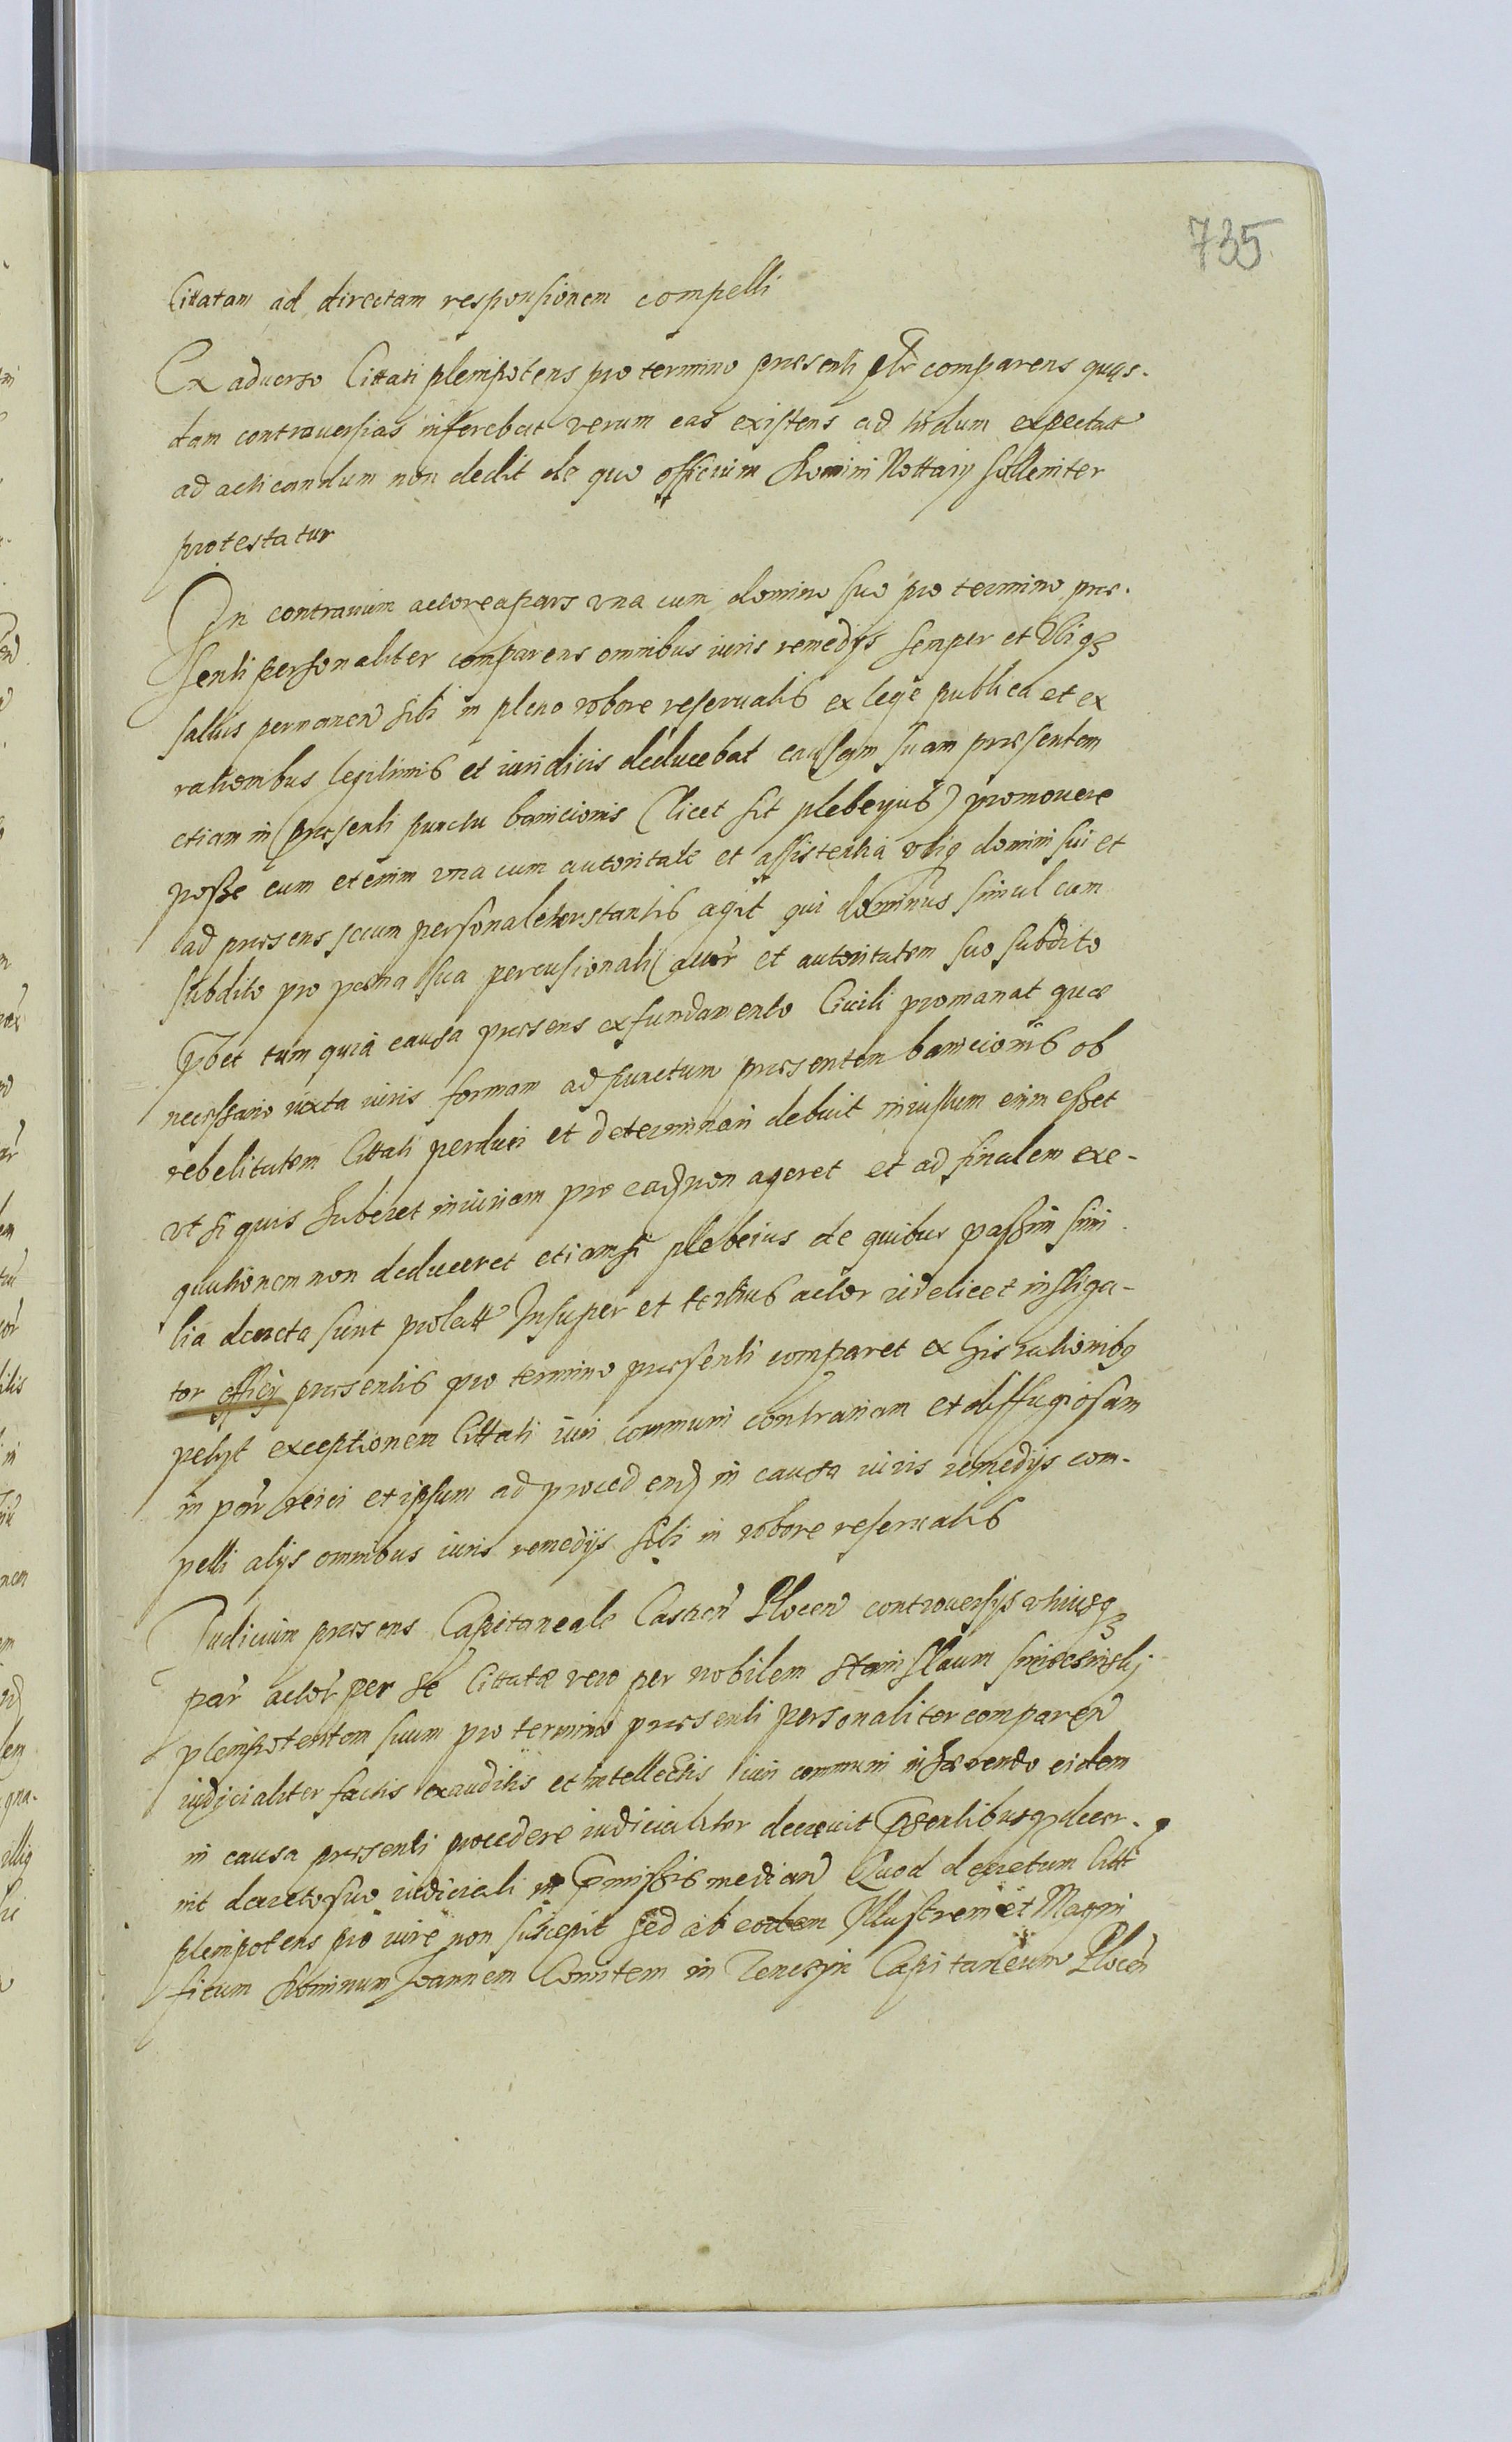 735
Cittatam ad directam responsionem compelli
Ex aduerso Cittati plenipotens pro termino præsenti plr comparens quas-
dam controuersias inferebat verum eas existens ad tridum expectat
ad acticandum non dedit de quo officium Domini Nottarÿ solleniter
protestatur
In contrarium actorea pars vna cum domino suo pro termino præ-
senti personaliter comparens omnibus iuris remedÿs semper et vbiq3
saluis permanen sibi in pleno robore reseruatis ex lege publica et ex
rationibus legitimis et iuridicis deducebat causam suam præsentem
etiam in præsenti punctu banicionis (licet sit plebeyus) promouere
posse cum etenim vna cum autoritate et assistentia vbiq domini sui et
ad præsens secum personaliter stantis agit qui dominus simul cum
subdito pro pœna sua percusionali auor et autoritatem suo subdito
præbet tum quia causa præsens ex fundamento Ciuili promanat quæ
necessario iuxta iuris formam ad punctum præsentem banicionis ob
rebelitatem Cittati perduci et determinari debuit iniustum enim esset
vt si quis haberet iniuriam pro ead non ageret et ad finalem exe-
qutionem non deduceret etiamsi plebeius de quibus passim simi
lia decreta sunt prolatt Insuper et tertius actor videlicet instiga-
tor officÿ præsentis pro termino præsenti comparet ex his rationibq
petÿt exceptionem Cittati iuri communi contrariam et diffugiosam
in par reici et ipsum ad procedend in causa iuris remedÿs com-
pelli alÿs omnibus iuris remedÿs sibi in robore reseruatis
Iudicium præsens Capitaneale Castren Plocen controuersÿs vtriusq3
par actor per se Cittatæ vero per nobilem Stanislaum
plenipotentem suum pro termino præsenti personaliter comparen
iudicialiter factis exauditis et intellectis iuri communi inhærendo eidem
in causa præsenti procedere iudicialiter decreuit præsentibusq decer-
nit decreto suo iudiciali in præmissis median Quod decretum Citt
plenipotens pro iure non suscepit sed ab eodem Illustrem et Magni
ficum Dominum Joannem Comitem in Tenczyn Capitaneum Plocen